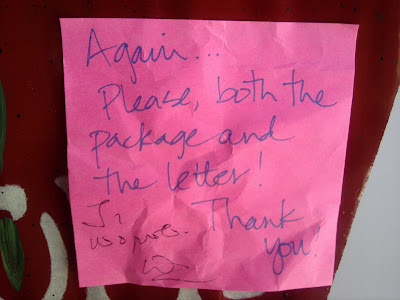 Again...
Please, both the
package and
the letter!
Thank
you!